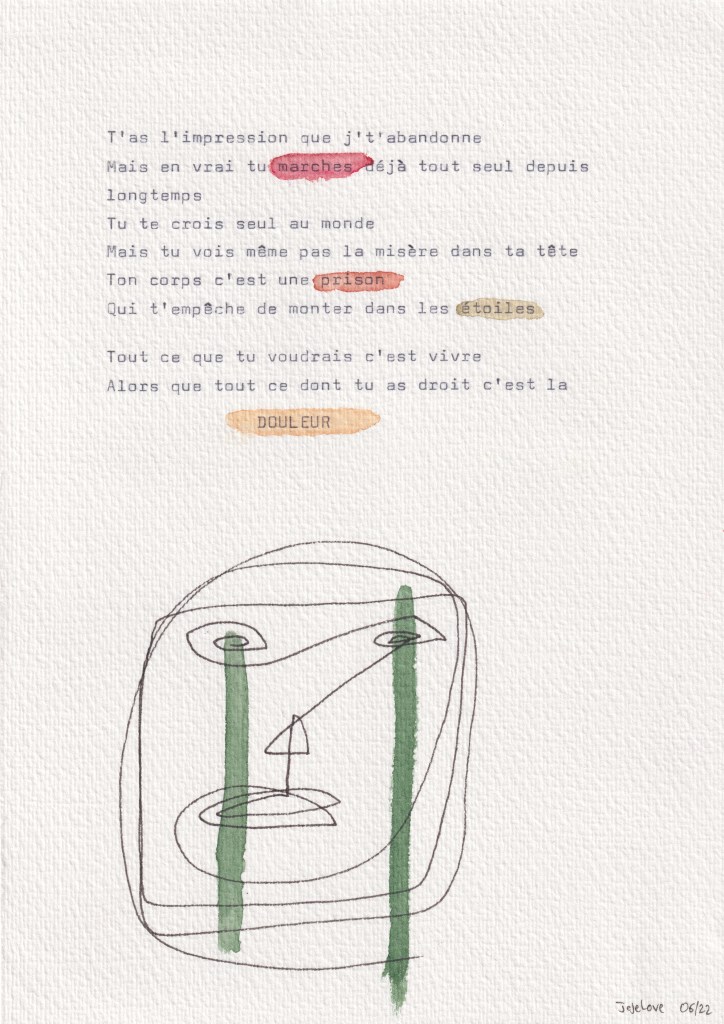 T'as l'impression que j't'abandonne
Mais en vrai tu marches déjà tout seul depuis
longtemps
Tu te crois seul au monde
Mais tu vois même pas la misère dans ta tête
Ton corps c'est une prison
Qui t'empêche de monter dans les étoiles
Tout ce que tu voudrais c'est vivre
Alors que tout ce dont tu as droit c'est la
DOULEUR
JejeLove 06/22